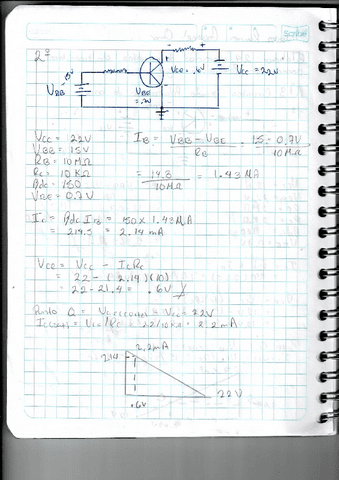 2º
VCE = .6V
VCC = 22V
VBB
VBE = .7V
VCC = 22V
VBB = 15V
RB = 10MΩ
RC = 10KΩ
βdc = 150
VBE = 0.7V
IB = VBB - VBE / RB = 15 - 0.7V / 10MΩ
= 14.3 / 10MΩ = 1.43MA
IC = βdc IB = 150 x 1.43MA
= 214.5 = 2.14 mA
VCE = VCC - ICRC
= 22 - (2.14)(10)
= 22 - 21.4 = .6V
Punto Q = VCE(corte) = VCC = 22V
IC(sat) = VCC/RC = 22/10KΩ = 2.2mA
2.2mA
2.14
22V
.6V